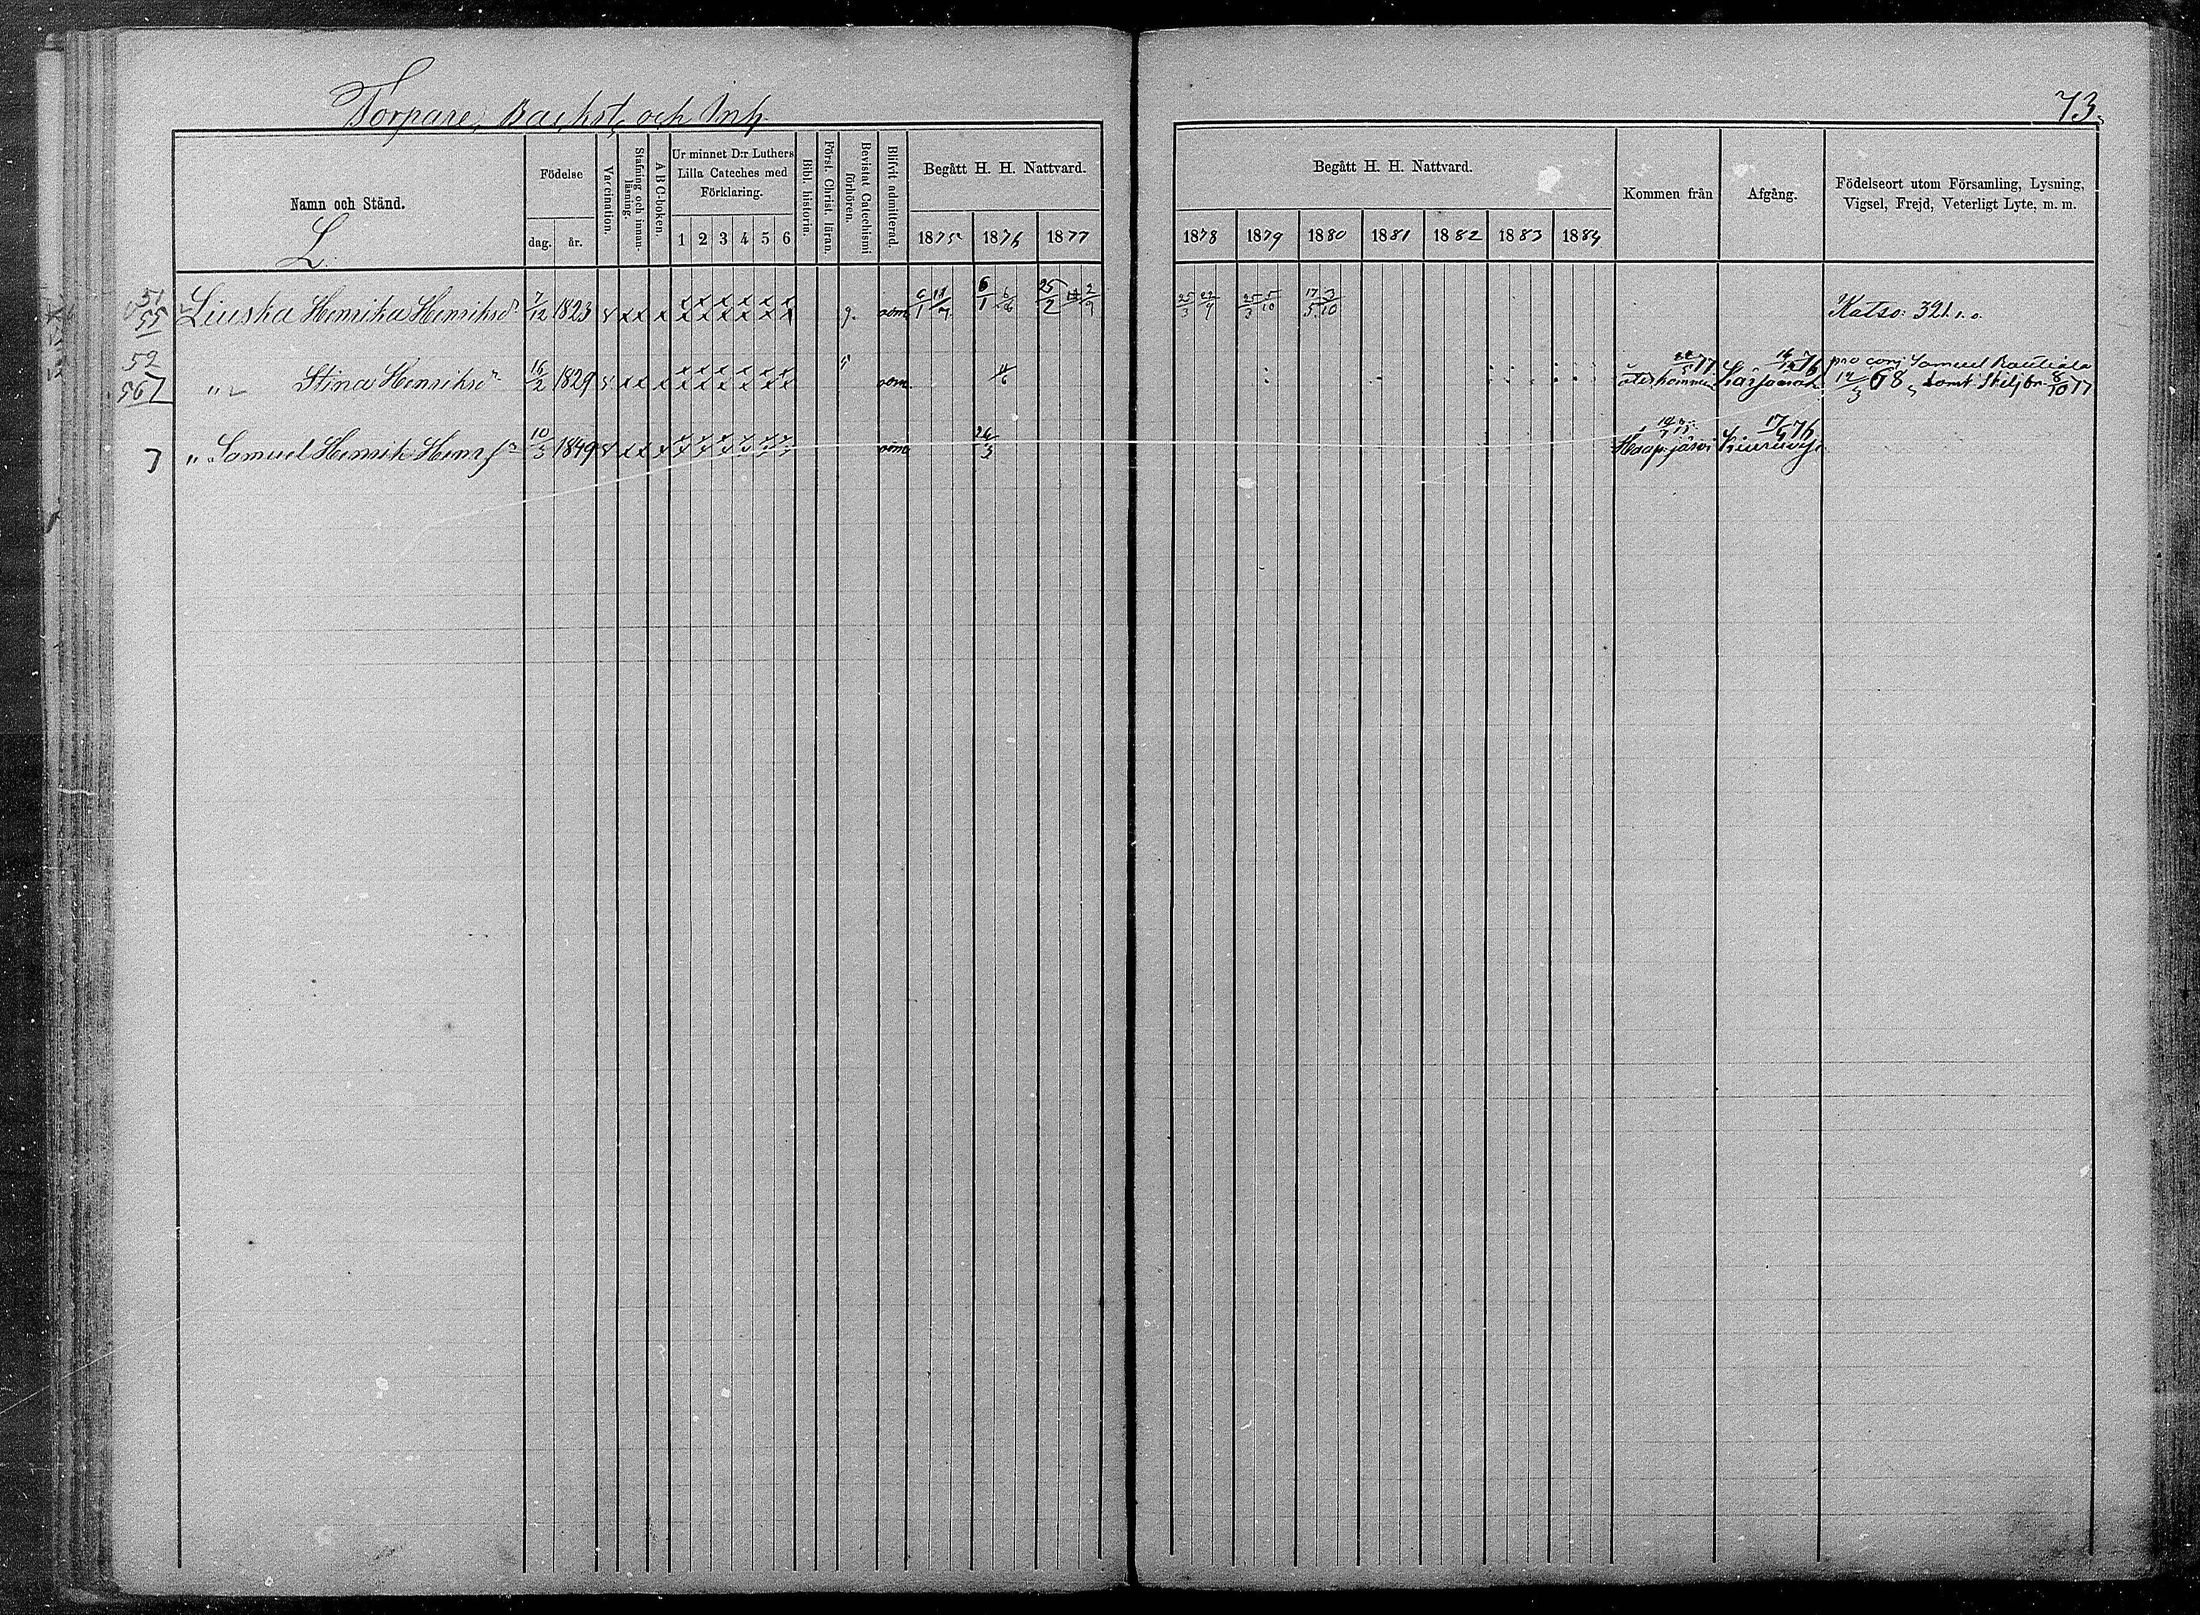 Torpare, Backst. och Inh.
73.
Namn och Stånd.
L.
Födelse
dag. år.
Vaccination.
Stafning och innanläsning.
A B C-boken.
Ur minnet D:r Luthers Lilla Cateches med Förklaring.
1 2 3 4 5 6
Bibl. historia.
Först. Christ. läran.
Bevistat Catechismi förhören.
Blifvit admitterad.
Begått H. H. Nattvard.
1875 1876 1877
Begått H. H. Nattvard.
1878 1879 1880 1881 1882 1883 1884
Kommen från
Afgång.
Födelseort utom Församling, Lysning, Vigsel, Frejd, Veterligt Lyte, m. m.
51
55 Liuska Henrika Henriksdr 7/12 1823 v x x x x x x x x g. adm. 6/1 6/6 25/2 2/9 25/3 22/9 25/3 5/10 17/5 3/10 Katso: 321.
52
567 " Stina Henriksdr 16/2 1829 v x x x x x x x x " adm. 11/6 återkommen 16/12 76 pro conj. Samuel
19/3 68, Skiljbr. 8/10 77
7 " Samuel Henrik Henr. 10/3 1849 v x x x x x x x x adm. 26/3 Haapajärvi 17/5 76 Kiuruvesi